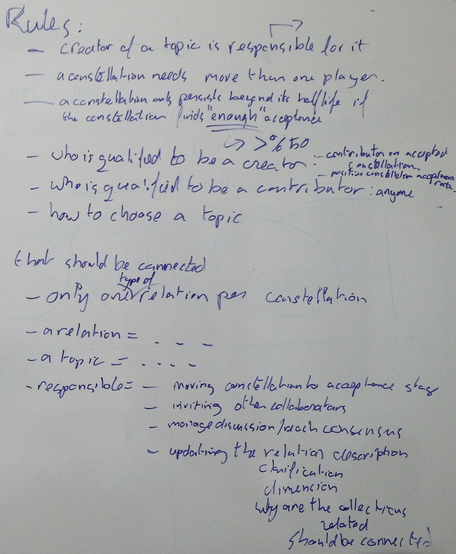 Rules:
- creator of a topic is responsible for it
- a constellation needs more than one player.
- a constellation only persists beyond its half life if
the constellation finds "enough" acceptance
> %50
- who is qualified to be a creator: - contributor in accepted
constellation
- positive constellation acceptance
- who is qualified to be a contributor: anyone
- how to choose a topic
that should be connected
type of
- only one relation per constellation
- a relation = . . .
- a topic = . . . .
- responsible = - moving constellation to acceptance stage
- inviting other collaborators
- manage discussion/reach consensus
- updating the relation description
clarification
dimension
why are the collections
related
should be connected